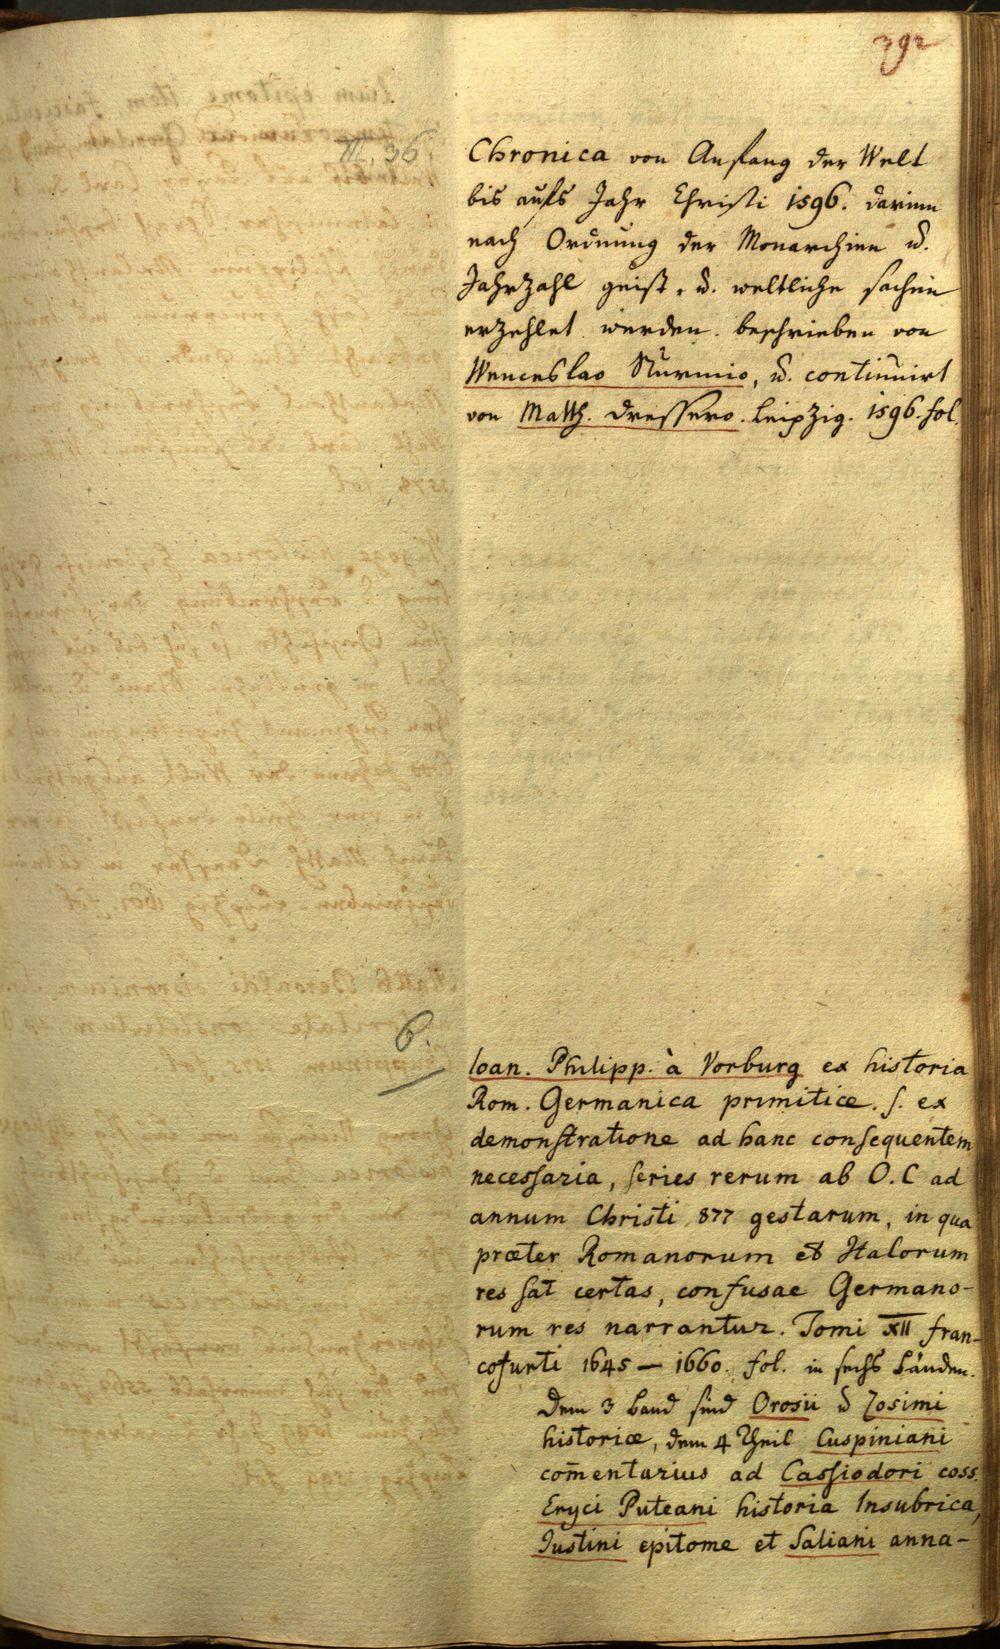 392
III, 36.
Chronica von Anfang der Welt
bis aufs Jahr Christi 1596. darinn
nach Ordnung der Monarchien u.
Jahrzahl geist. u. weltliche sachen
erzehlet werden. beschrieben von
Wenceslao Sturmio, u. continuirt
von Matth. Dressero. Leipzig. 1596. fol.
6.
Ioan. Philipp. à Vorburg ex historia
Rom. Germanica primitice. s. ex
demonstratione ad hanc consequentem
necessaria, series rerum ab O. C ad
annum Christi 877 gestarum, in qua
præter Romanorum et Italorum
res sat certas, confusae Germano-
rum res narrantur. Tomi XII fran-
cofurti 1645 — 1660. fol. in sechs Bänden.
Dem 3 Band sind Orosii u Zosimi
historiæ, dem 4 Theil Cuspiniani
com̄entarius ad Cassiodori coss.
Eryci Puteani historia Insubrica,
Iustini epitome et Saliani anna-